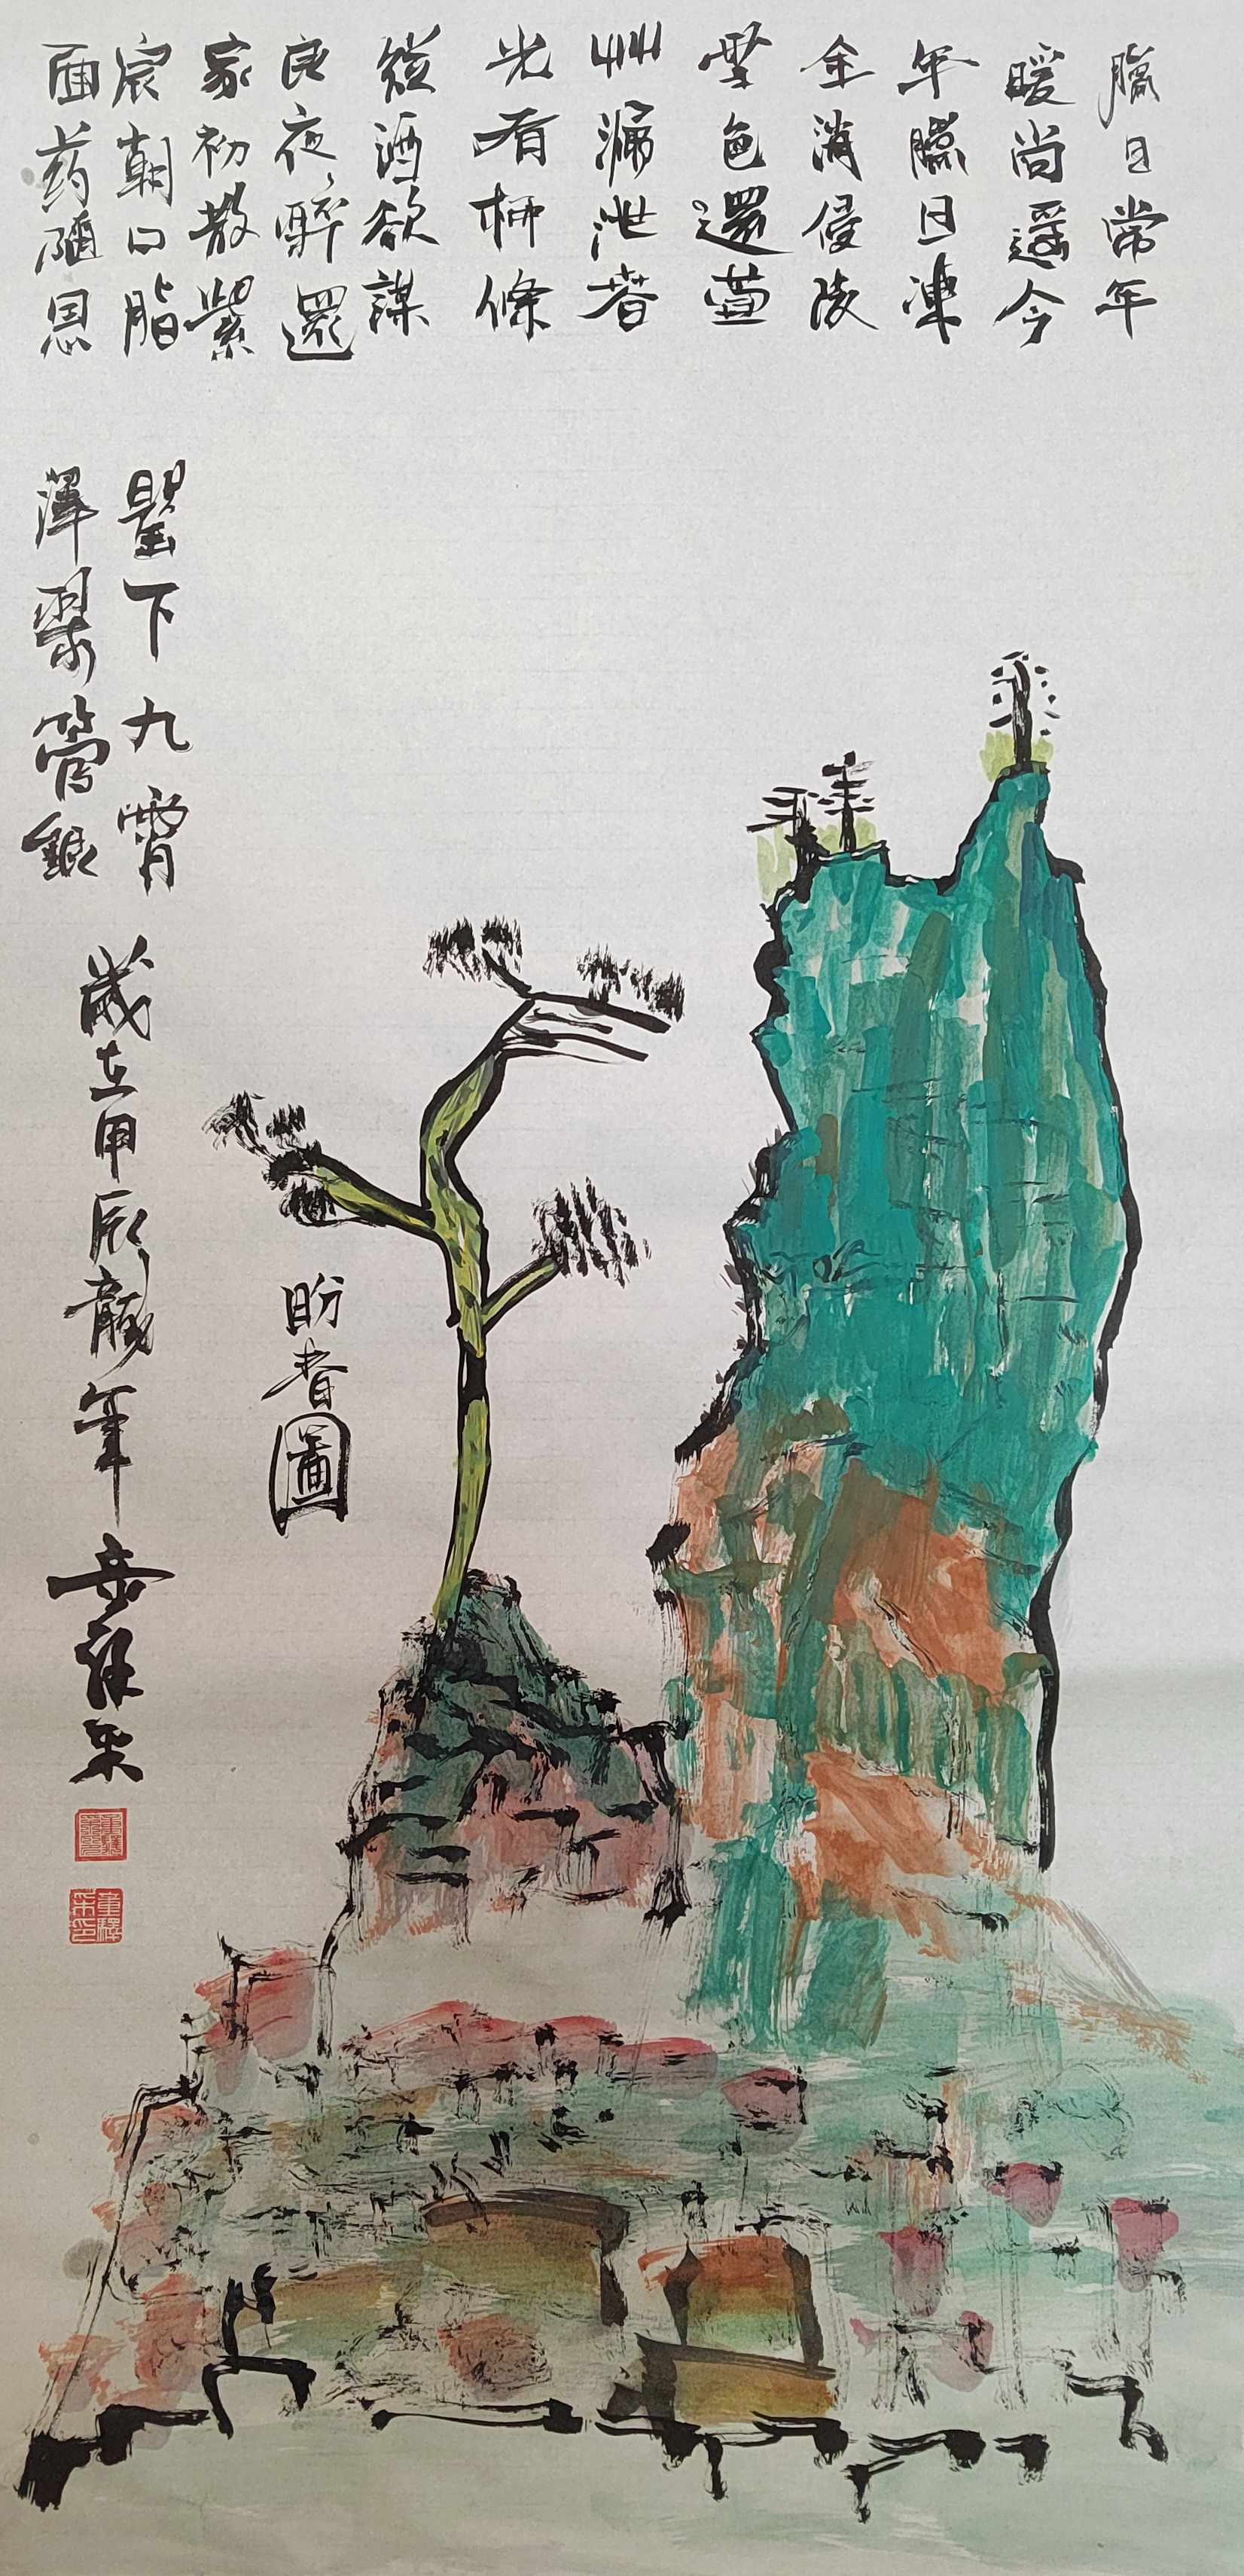 臘日常年
暖尚遥今
年臘日凍
全消侵陵
雪色還萱
艸漏泄春
光有柳條
從酒欲謀
良夜醉還
家初散紫
宸朝口脂
面药隨恩
澤翠管銀
罌下九霄
歲在甲辰龍年
盼春圖